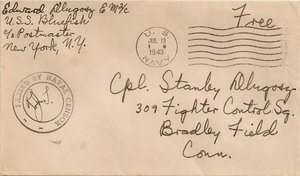 Edward Dlugosz EM 3/c
U.S.S. Bluefish
c/o Postmaster
New York, N.Y.
Free
U. S.
JUL 13
1943
NAVY
PASSED BY NAVAL CENSOR
Cpl. Stanley Dlugosz
309 Fighter Control Sq.
Bradley Field
Conn.